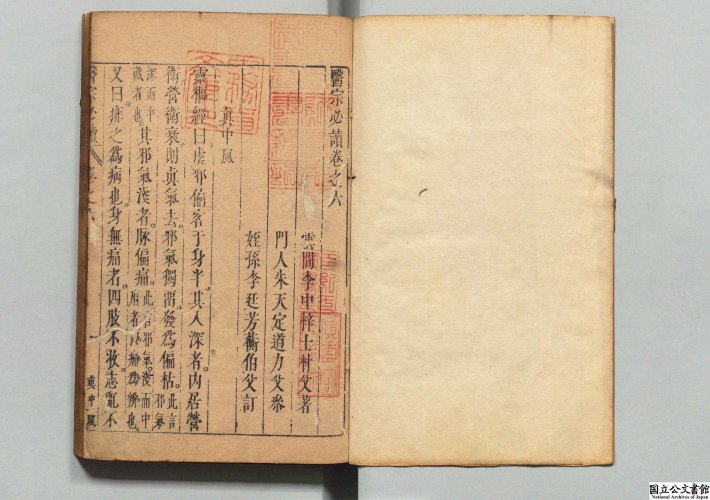 醫宗必讀卷之六
雲間李中梓士材父著
門人朱天定道力父參
姪孫李廷芳蘅伯父訂
真中風
靈樞經曰虛邪偏客于身半其入深者內居營
衛營衛衰則真氣去邪氣獨留發為偏枯此言邪氣
深而中
臟者也其邪氣淺者脉偏痛此言邪氣淺而中
腑者以痛為辨也
又曰痱之為病也身無痛者四肢不收志亂不
真中風
国立公文書館
National Archives of Japan